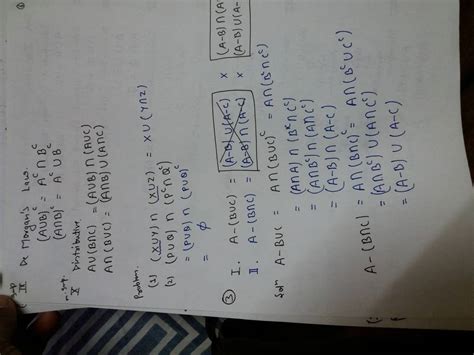 IX De Morgan's Law.
(A∪B)ᶜ = Aᶜ ∩ Bᶜ
(A∩B)ᶜ = Aᶜ ∪ Bᶜ
X Distributive
A∪(B∩C) = (A∪B) ∩ (A∪C)
A∩(B∪C) = (A∩B) ∪ (A∩C)
Problem.
(1) (X∪Y) ∩ (X∪Z) = X∪(Y∩Z)
(2) (P∪Q) ∩ (Pᶜ∩Qᶜ)
= (P∪Q) ∩ (P∪Q)ᶜ
= ϕ
③ I. A-(B∪C) = (A-B)∪(A-C) × (A-B)∩(A
II. A-(B∩C) = (A-B)∩(A-C) × (A-B)∪(A
Solⁿ A-B∪C = A∩(B∪C)ᶜ = A∩(Bᶜ∩Cᶜ)
= (A∩A)∩(Bᶜ∩Cᶜ)
= (A∩Bᶜ)∩(A∩Cᶜ)
= (A-B)∩(A-C)
A-(B∩C) = A∩(B∩C)ᶜ = A∩(Bᶜ∪Cᶜ)
= (A∩Bᶜ)∪(A∩Cᶜ)
= (A-B)∪(A-C)